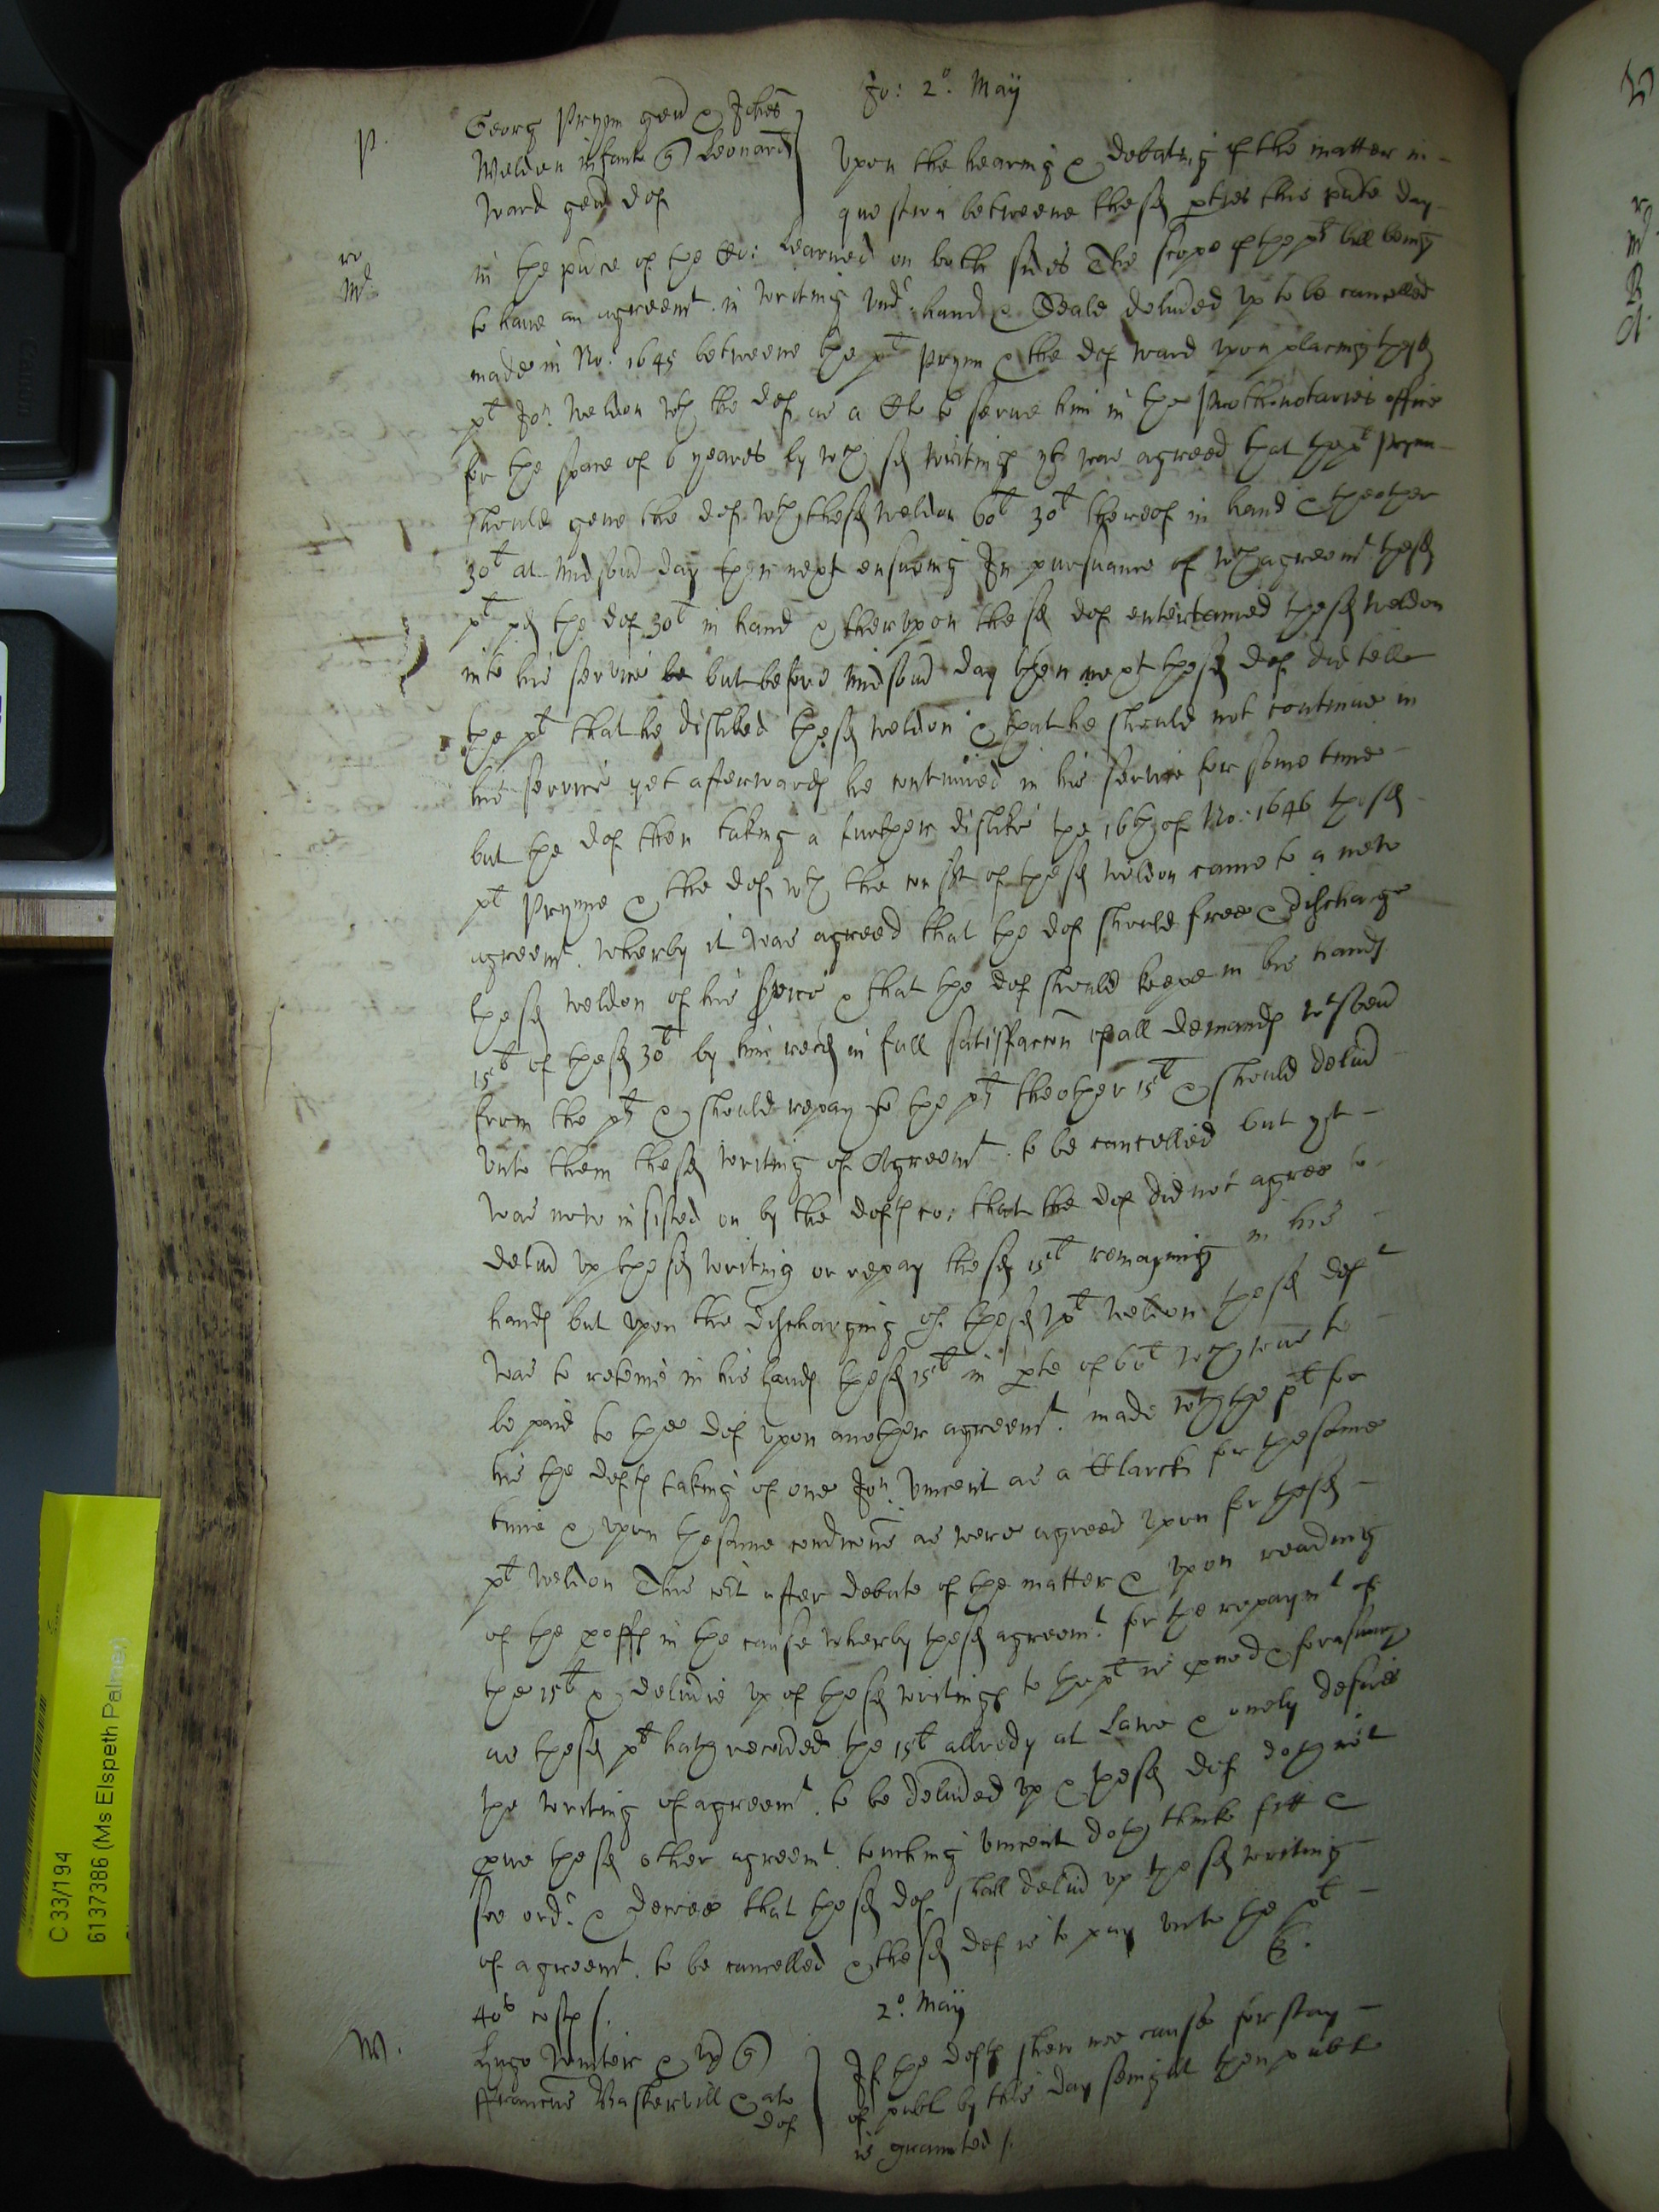 Jo: 2º. May
P.
Georg Prynn gen & Johes
Weldon infant q Leonard
Ward gen def
Upon the hearing & debating of the matter in
question betweene these pties this pnte day
ro
Md
in the pnce of the Co: Learned on both sides The scope of the plts bill being
to have an agreemt. in writing undr. hand & Seale delivered up to be cancelled
made in No: 1645 betweene the plt Prynn & the def Ward upon placing the sd
plt Jon. Weldon wth the def as a Cle to serve him in the Prothonotaries office
for the space of 6 yeares by wch sd writing yt was agreed that the plt Prynn
should geve the def wth the sd Weldon 60l 30l thereof in hand & the other
30l at Midsomr day then next ensueing In pursuance of wch agreemt the sd
plt pd the def 30l in hand & therupon the sd def entertained the sd Weldon
into his service be but before Midsomr day then next the sd def did tell
the plt that he disliked the sd Weldon & that he should not continue in
his service yet afterwards he continued in his service for some time
but the def then taking a further dislike the 16th of No: 1646 the sd
plt Prynne & the def wth the consent of the sd Weldon came to a new
agreemt. wherby it was agreed that the def should free & discharge
the sd Weldon of his service & that the def should keepe in his hands
15l of the sd 30l by him recd in full satisfaccon of all demands wtsoevr
from the plt & should repay to the plt the other 15l & should delivr
unto them the sd writing of Agreemt. to be cancelled but yt
was now insisted on by the defts co: that the def did not agree to
delivr up the sd writing or repay the sd 15l remayning in his
hands but upon the discharging of the sd plt Weldon the sd deft
was to reteine in his hands the sd 15l in pte of 60l wch was to
be paid to the def upon another agreemt. made wth the plt for
his the defts taking of one Jon. Vincent as a Clarck for the same
time & upon the same condicons as were agreed upon for the sd
plt Weldon This Cot after debate of the matter & upon reading
of the prooffs in the cause wherby the sd agreemt. for the repaymt of
the 15l & delivie up of the sd writings to the plt is pved & forasmuch
as the sd plt hath recovered the 15l allredy at Lawe & onely desires
the writing of agreemt. to be delivered up & the sd def doth not
pve the sd other agreemt. touching Vincent doth thinke fitt &
soe ordr. & decree that the sd def shall delivr up the sd writing
of agreemt. to be cancelled & the sd def is to pay unto the plt
40s costs /.
E.
2º. May
W.
Hugo Winter & Ux q
Franciscus Baskervill & al
def
If the defts shew noe cause for stay
of publ by this day senight then publ
is graunted /.
C 33/194
6137386 (Ms Elspeth Palmer)